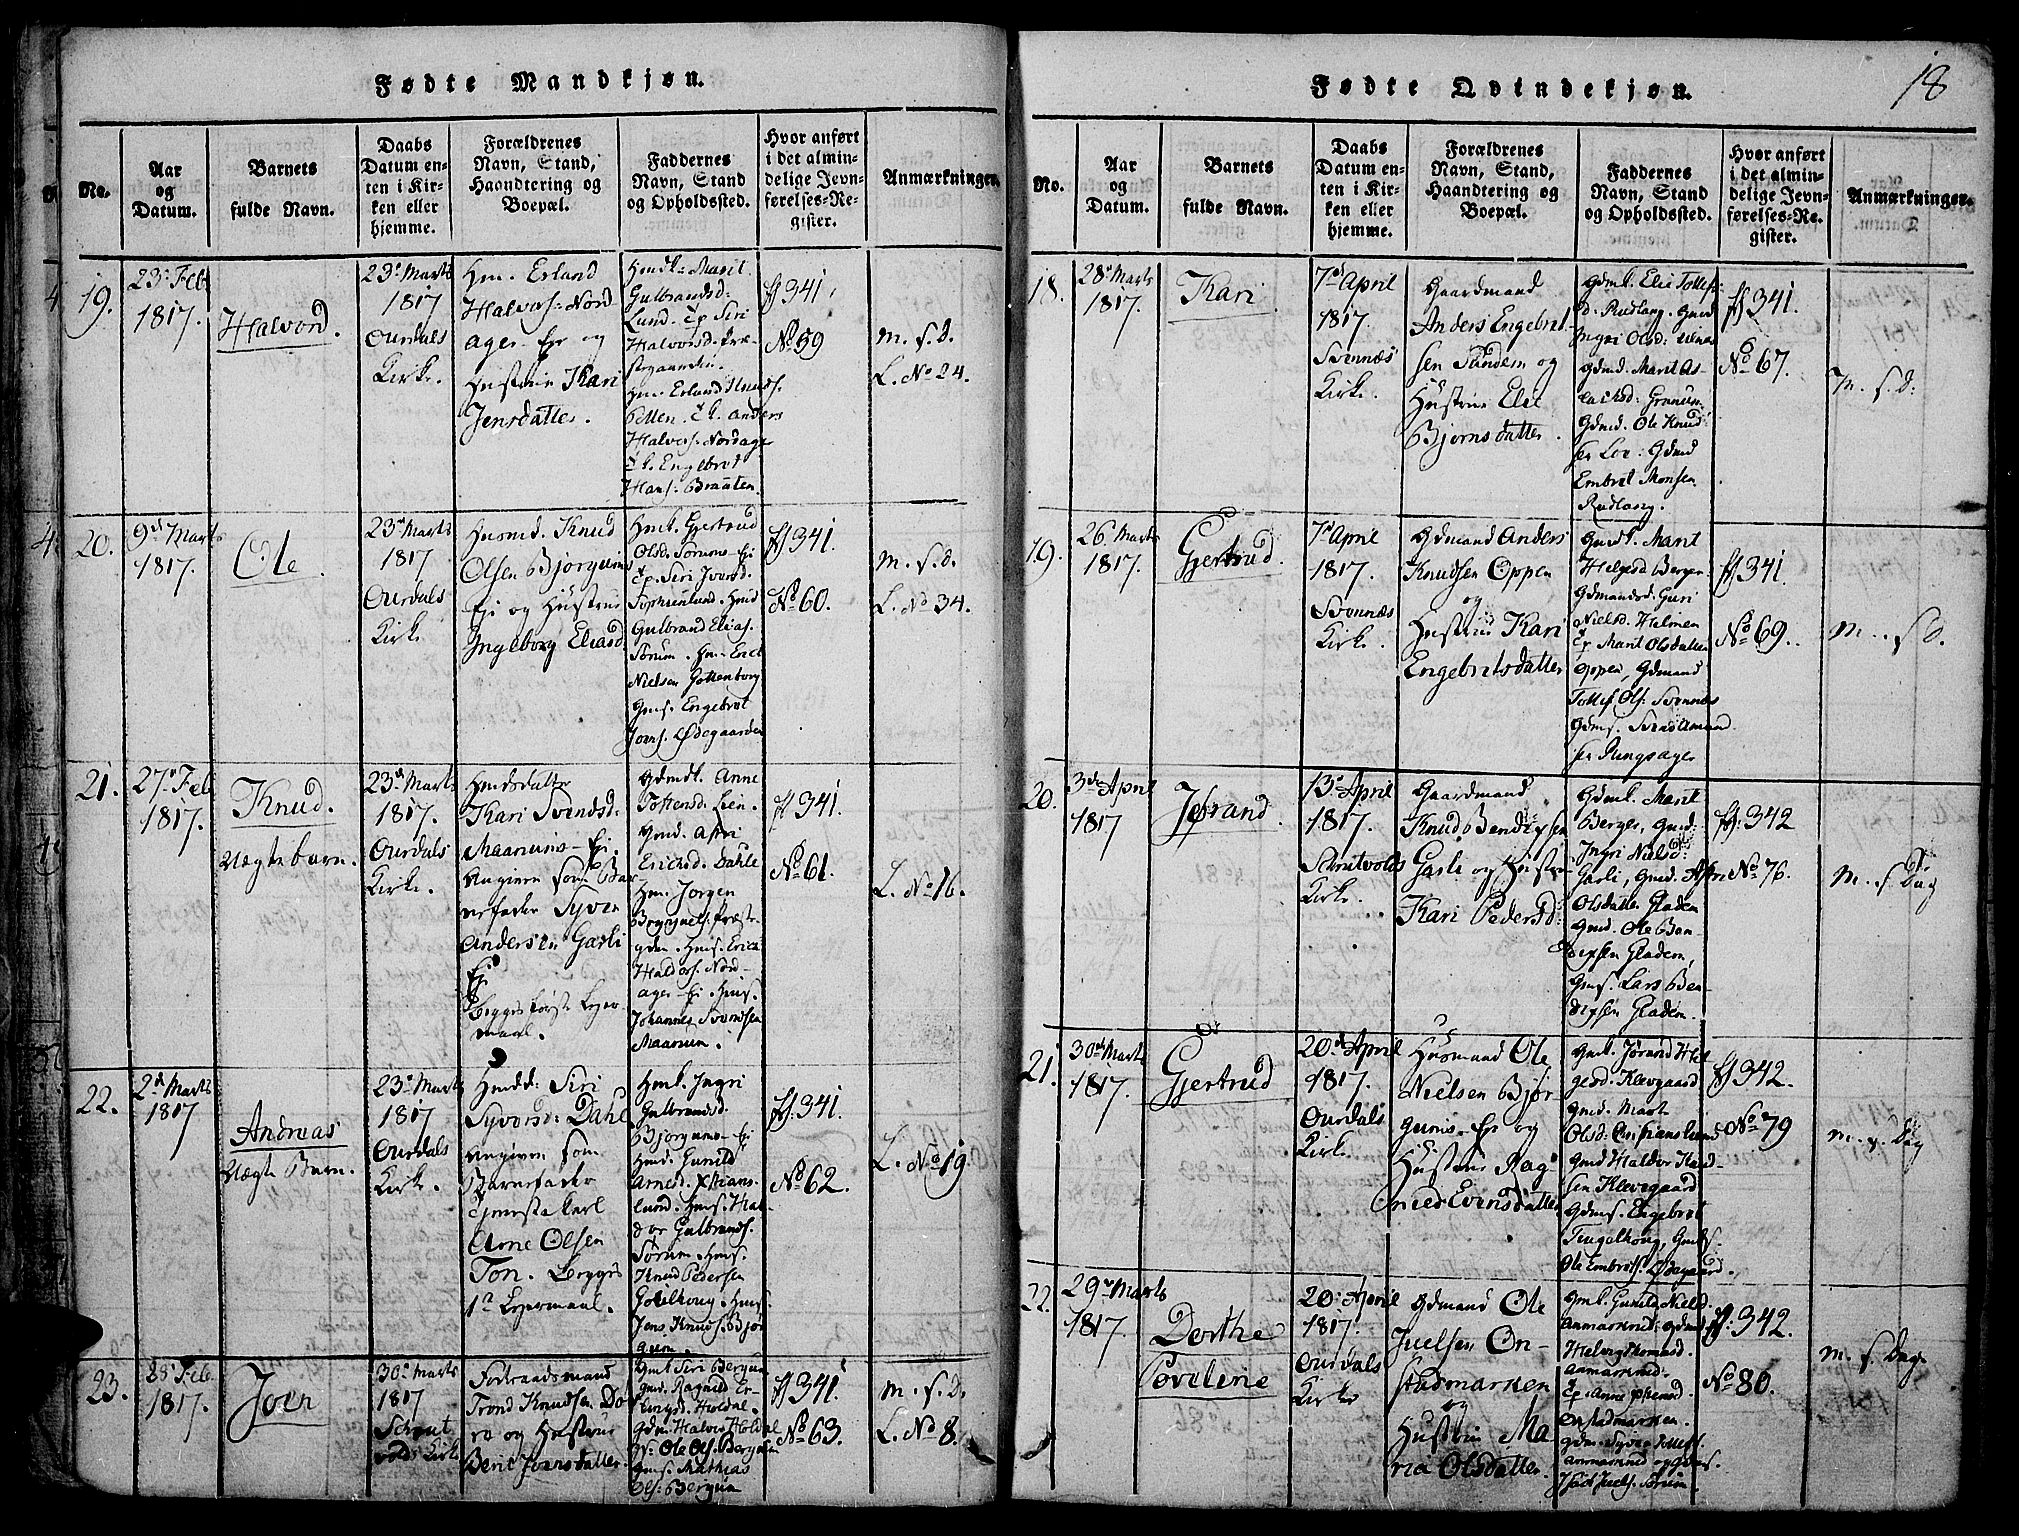 Fødte Mandkjøn.
No.
Aar
og
Datum.
Barnets
fulde Navn.
Daabs
Datum en-
ten i Kir-
ken eller
hjemme.
Forældrenes
Navn, Stand,
Haandtering og
Boepæl.
Faddernes
Navn, Stand
og Opholdssted.
Hvor anført
i det almin-
delige Jevn-
førelses-Re-
gister.
Anmærkninger.
19.
23de Feb
1817.
Halvord.
23de Marts
1817
Ourdals
Kirke.
Hm. Erland
Halvors. Nord
ager-Eje og
Hustrue Kari
Jensdatter.
Hmdk. Marit
Gulbrandsd:
Lund. Ep Siri
Halvorsd. Præ-
stegaarden.
Hm. Erland Knuds.
Anders
Halvors. Nordager
Engebret
Hans. Braaten.
ff 341.
No 59
m. s. d.
L. No 24.
20.
9de Marts
1817.
Ole
23de Marts
1817
Ourdals
Kirke.
Husmd. Knud
Olsen Bjørgums
Eje og Hustrue
Ingeborg Eliasd
Hmk. Gjertrud
Olsd. Sørums-Eje
Ep. Siri Iversd.
Gulbrand Elias.
Sørum. Hm. Erick
Nielsen Gottenborg
Gms. Engebret
Joens. Ødegaarden
ff 341.
No 60.
m. s. d.
L. No 34.
21.
27de Feb
1817.
Knud.
Uægte barn.
23de Marts
1817.
Ourdals
Kirke.
Husmdsdatter
Kari Svendsd:
Maarums-Ej.
Angiven som Bar-
nefader Syver
Andersen Garli
Ej
Begges første Lejer
maal.
Gdmdk. Anne
Tostensd. Lien.
Gmd. Astri
Ericksd. Dahle
Hm. Jørgen
Hms. Erick
Haldors. Nord-
ager-Ej. Hms.
Johannes Svendsen
Maarum.
ff 341.
No 61.
L. No 16.
22.
2de Marts
1817
Andreas
Uægte Barn.
23de Marts
1817
Ourdals
Kirke.
Hmdd: Siri
Syversd: Dahl
Angiven som
Barnefader
Tjenestekarl
Arne Olsen
Ton. Begges
1ste Lejermaal.
Hmk. Ingri
Gulbrandsd.
Bjørgums-Ej
Hmd. Gunild
Arnesd. Xstians-
lund. Hms. Hal-
dor Gulbrands.
Sørum. Hms.
Knud Pedersen
Hms.
Jens Knuds. Bjør
gum.
ff. 341.
No 62.
L. No 19.
23.
28de Feb.
1817.
Joen
30de Marts
1817
Skrut
volds Kirke
Forlraadsmand
Trond Knudsen Do
ro og Hustrue
Berit Joensdatter.
Gmk Siri Bergum
Gmd. Ragnild Er-
lingsd. Holdal.
Gdm. Halvor Holdal
Ole Ols. Bergum
Gms. Mathias
Ols. Bergum
ff 341.
No 63.
m. s. d.
L. No 8.
Fødte Qvindekjøn.
18
No.
Aar
og
Datum.
Barnets
fulde Navn.
Daabs
Datum en-
ten i Kir-
ken eller
hjemme.
Forældrenes
Navn, Stand,
Haandtering og
Boepæl.
Faddernes
Navn, Stand
og Opholdssted.
Hvor anført
i det almin-
delige Jevn-
førelses-Re-
gister.
Anmærkninger.
18.
28de Marts
1817.
Kari
7de April
1817.
Svennæs
Kirke.
Gaardmand
Anders Engebret-
sen Sunden og
Hustrue Elie
Bjørnsdatter.
Gdmk. Elie Tollefs-
d. Rudlang. Gmd
Ingri Olsd:
Gdmd. Marit As
lacksd: Granum
Gdmd. Ole Knud
sen Loe: Gdmd
Embret Monsen
Rudlang.
ff 341.
No 67.
m. s. d.
19.
26 Marts
1817.
Gjertrud.
7de April
1817.
Svennæs
Kirke.
Gdmand Anders
Knudsen Oppen
og
Hustrue Kari
Engebretsdatter
Gmdk. Marit
Helgesd Berger
Gdmandsd: Guri
Nielsd. Helmen
Ep Marit Olsdatter
Oppen, Gdmand
Tollef Ols. Svennæs
Gdms. Svend Amund
sen Ringsager
ff 341.
No 69.
m. s d.
20.
3de April
1817
Jøran̄d.
13de April
1817.
Skrutvolds
Kirke.
Gaardmand
Knud Bendixsen
Garli og Hustrue
Kari Pedersd:
Gdmk. Marit
Berger, Gmd.
Ingri Nielsd:
Garli, Gmd. Astri
Olsdatter Gladem
Gmd. Ole Ben
dixsen Gladem,
Gms. Lars Ben-
dixsen Gladem.
ff: 342
No 76.
m. s. Dag
21.
30de Marts
1817.
Gjertrud
20de April
1817.
Ourdals
Kirke.
Husmand Ole
Nielsen Bjør
gums-Eje og
Hustrue Rag-
nild Evensdatter
Gmk. Jørand Hel
gesd. Klevgaard
Gmd. Marit
Olsd: Cristianslund
Gmd Haldor Knud-
sen Klevgaard
Gdms. Engebret
Tingelhoug, Gmds.
Ole Embrets. Ødegaard.
ff 342.
No 79
m. s. Dag
22.
29de Marts
1817.
Dorthe
Poveline
20de April
1817.
Ourdals
Kirke
Gdmand Ole
Juelsen On-
stadmarken
og
Hustrue Ma
ria Olsdatter.
Gmk. Gunild Nielsd.
Helvig Thomasd.
Ep. Anne
Onstadmarken.
Gdm. Syver Tollefs.
Juels. Sørum
ff: 342.
No 80.
m. s. Dag.